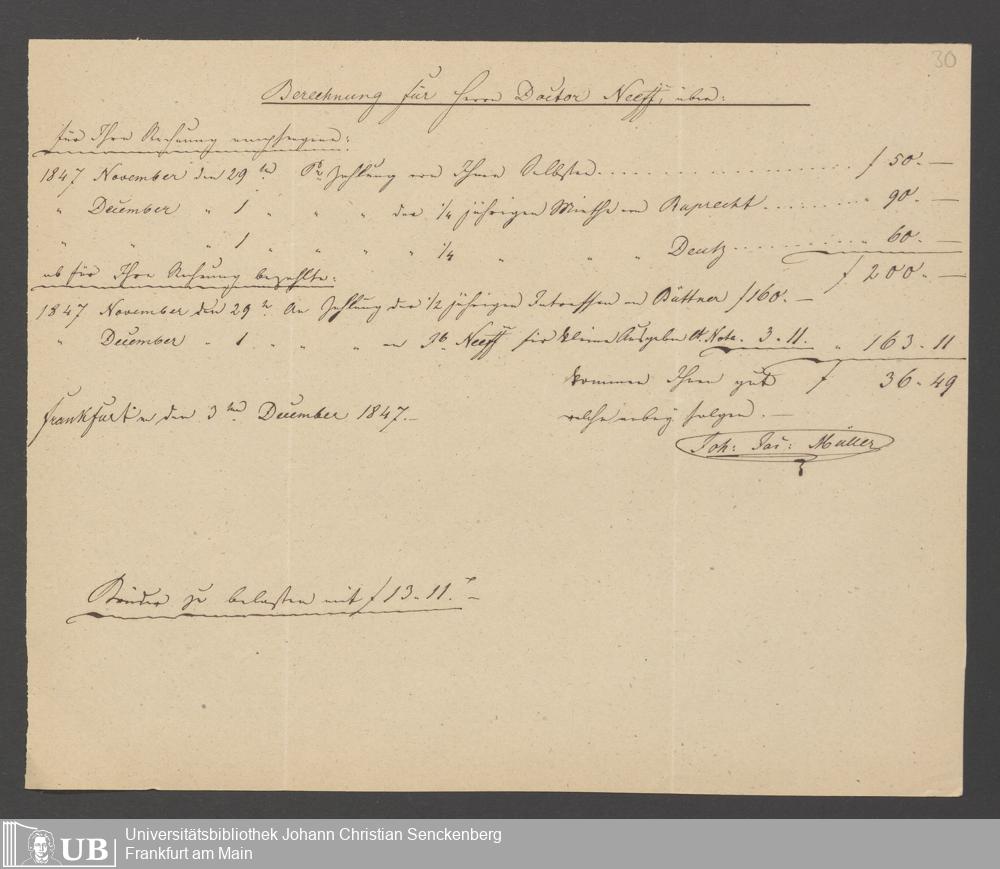 30
Berechnung für Herrn Doctor Neeff, über:
für Ihre Rechnung empfangene:
1847 November den 29 ten Pr Zahlung von Ihnen Selbsten . . . . . . . . . . . . . . . . . . . . f 50. —
" December " 1 " " " der 1/4 jährigen Miethe von Ruprecht . . . . . . . . " 90. —
" " " 1 " " " " 1/4 " " " Deutz . . . . . . . . . . " 60. —
ab für Ihre Rechnung bezahlte: f 200. —
1847 November den 29 n An Zahlung der 1/2 jährigen Intressen an Büttner f 160. —
" December " 1 " " " an Neeff für kleine Ausgaben Nota. 3. 11. " 163. 11
kommen Ihnen gut f 36. 49
Frankfurt den 3 ten December 1847. welche anbey folgen. —
Joh: Jac: Müller
zu belasten mit f 13. 11. —
UB Universitätsbibliothek Johann Christian Senckenberg
Frankfurt am Main